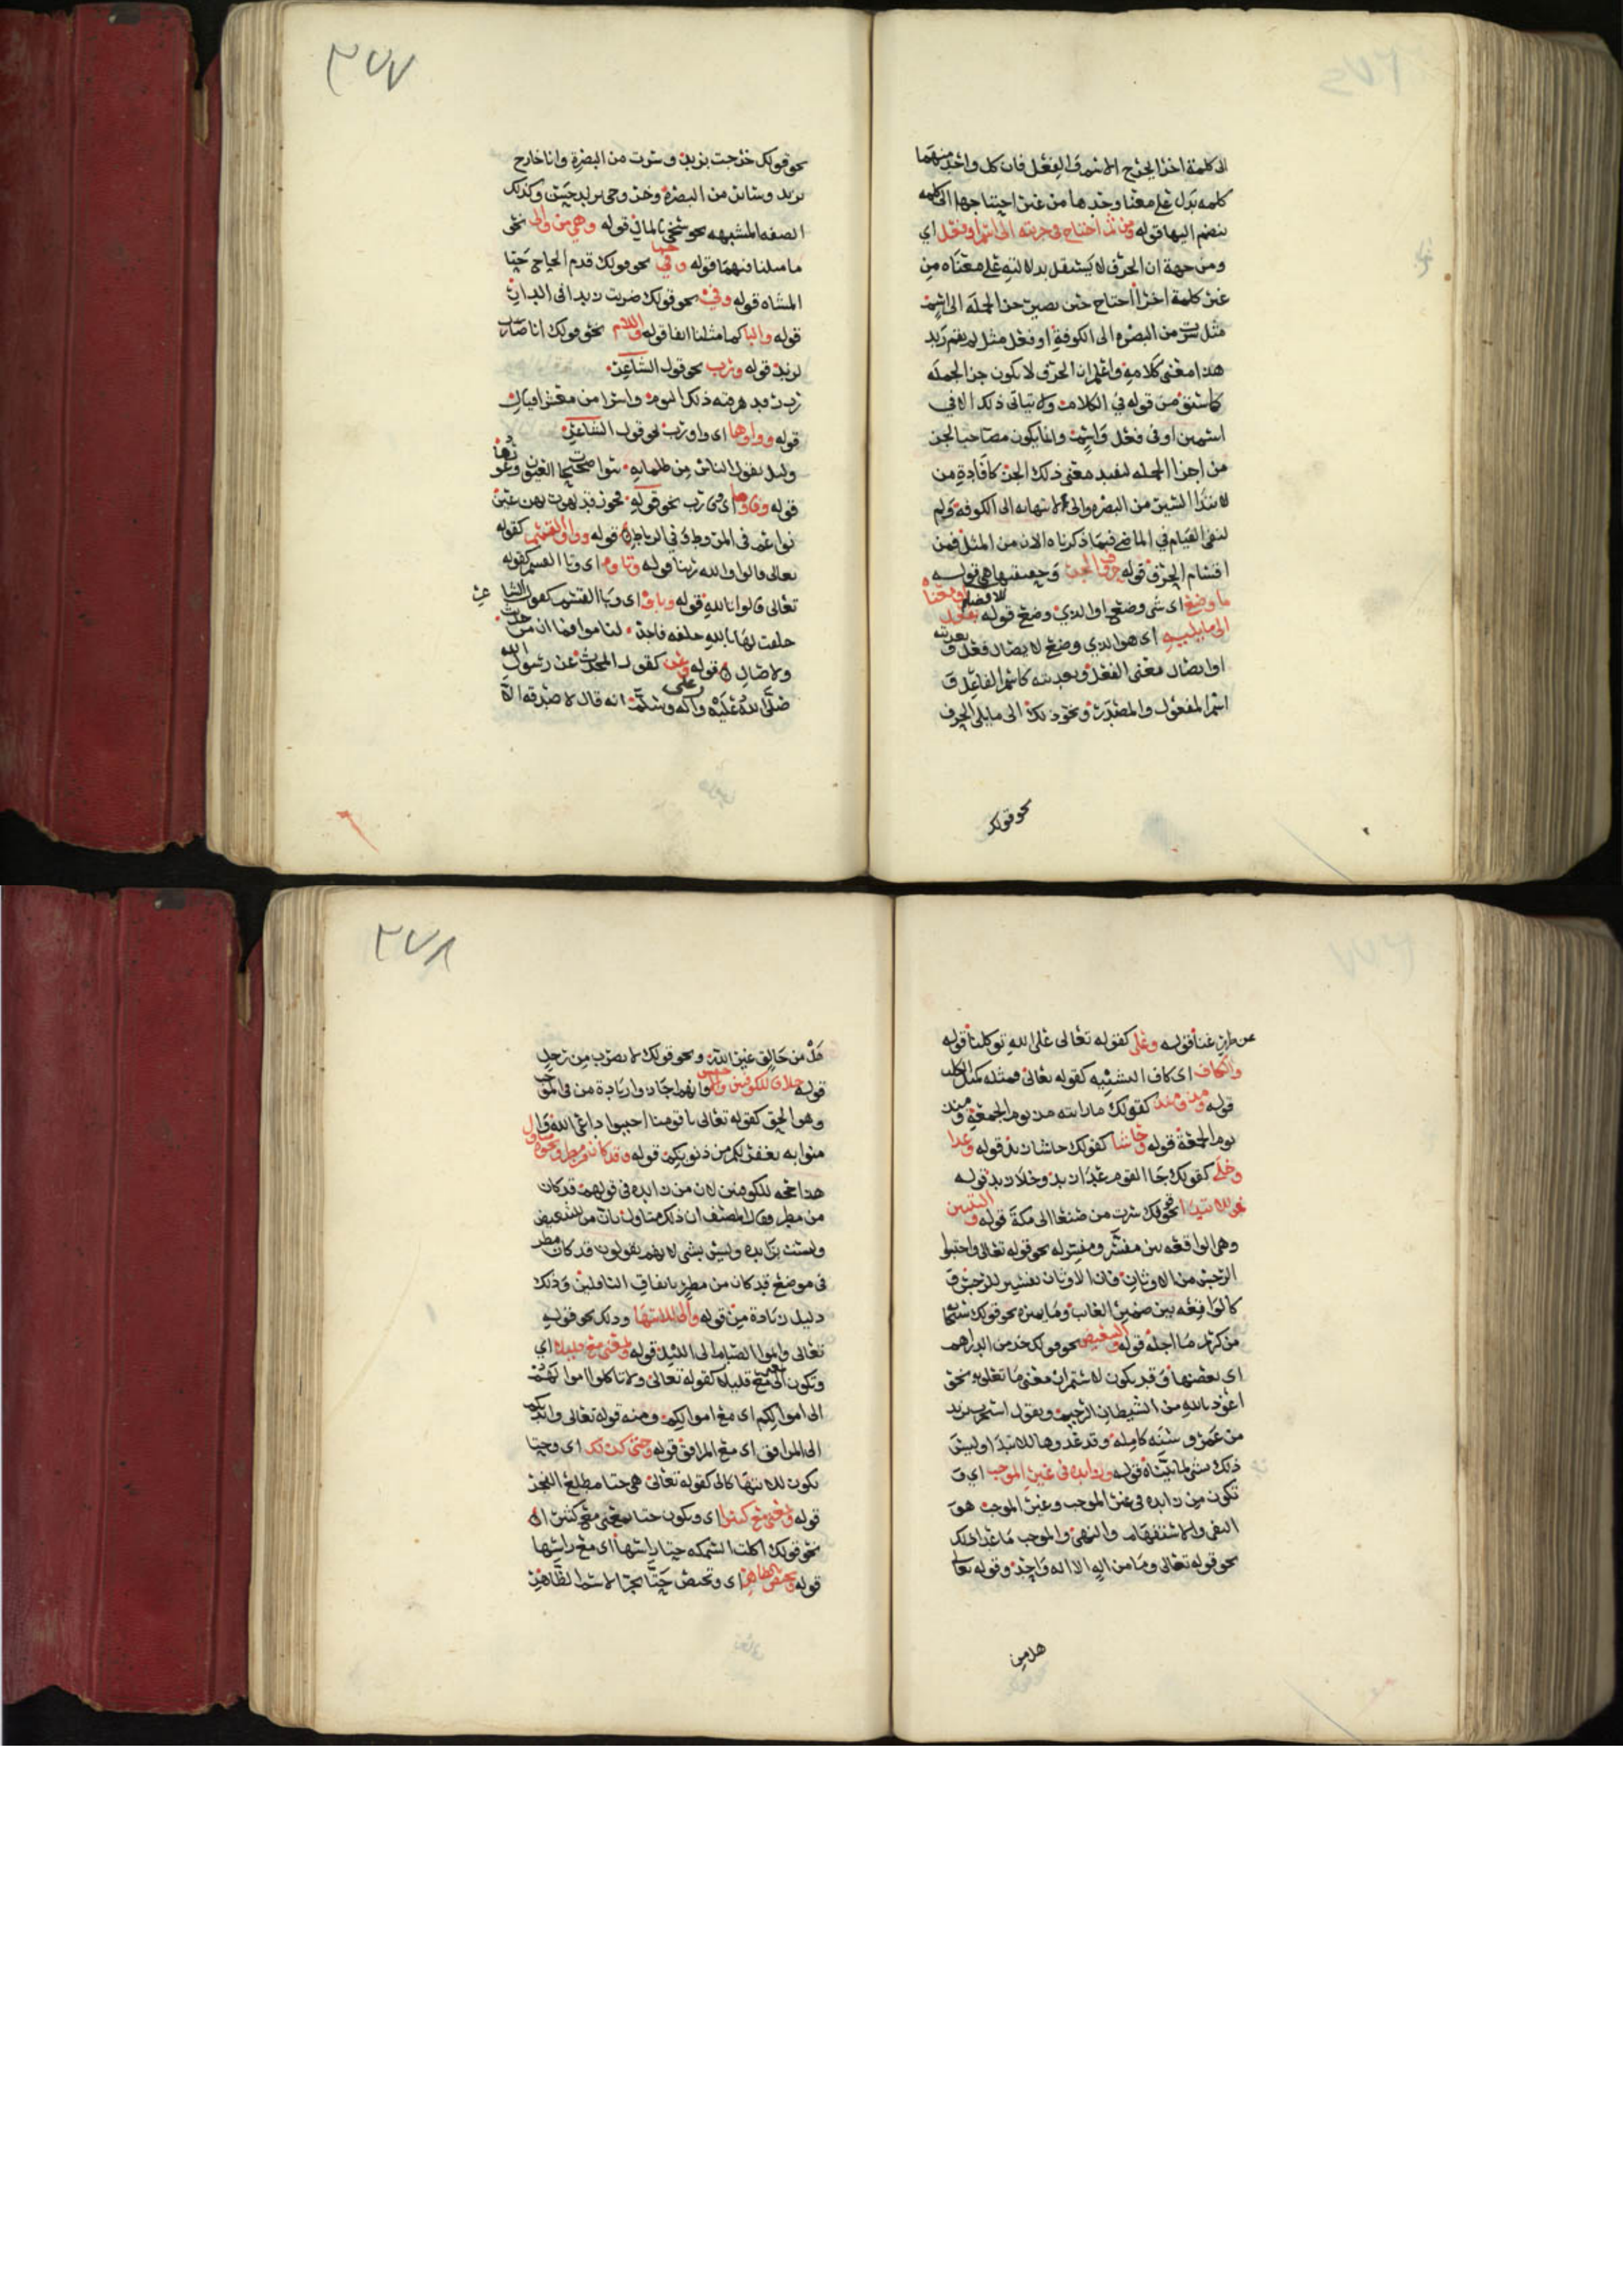 الى كلمة اخرا ليخرج الاسم والفعل فان كل واحد منهما
كلمه تدل على معنا وحدها من غير احتياجها الى كلمه
ينضم اليها قوله ومن ثم احتاج في جزيته الى اسم او فعل اي
ومن جهة ان الحرف لا يستقل بدلالته على معناه من
غير كلمة اخرا احتاج حتى يصير جزا لجمله الى اسم
مثل سرت من البصره والى الكوفة او فعل مثل لم يقم زيد
هذا معنى كلامه واعلم ان الحرف لا يكون جز الجمله
كما سبق من قوله في الكلام ولا يتاتى ذلك الا في
اسمين او في فعل واسم وانما يكون مصاحبا لجز
من اجزا الجمله ليفيد معنى ذلك الجز كافادة من
لابتدا السير من البصره والى لانتهايه الى الكوفة ولم
لنفي القيام في الماضي فيما ذكرناه الان من المثل فمن
اقسام الحرف قوله حروف الجر وحقيقتها هي قوله
ما وضع اي شي وضع او الذي وضع قوله للافضا بفعل او معناه
الى ما يليه اي هو الذي وضع لايصال فعل و تعديته
او ايصال معنى الفعل وتعديته كاسم الفاعل و
اسم المفعول والمصدر ونحو ذلك الى ما يلي الحرف
نحو قولك
٢٧٧
نحو قولك خرجت بزيد وسرت من البصرة وانا خارج
بزيد وساير من البصرة وكذلك
الصفه المشبهه نحو قوله وهي من والى نحو
ما مثلنا فيهما قوله وحتى نحو قولك قدم الحاج حتا
المشاه قوله وفي نحو قولك ضربت زيدا في الدار
قوله والبا كما مثلنا انفا قوله واللام نحو قولك انا ضارب
لزيد قوله ورب نحو قول الشاعر
رب رفد هرقته ذلك اليوم واسرا من معشر اقيال
قوله وواوها اي واو رب نحو قول الشاعر
وليل يقول الناس من ظلماته سوا صحيحات العيون وعورها
قوله
نواعم في المروط وفي الرياط قوله وواو القسم كقوله
تعالى قالوا والله ربنا قوله وتاوه اي وتا القسم كقوله
تعالى قالوا تالله قوله وباوه اي وبا القسم كقول الشاعر
حلفت لها بالله حلفه فاجر لناموا فما ان من حديث
ولا صال قوله وعن كقول المحدث عن رسول الله
صلى الله عليه وعلى اله وسلم انه قال لا صدقه الا
عن ظهر غنا قوله وعلى كقوله تعالى على الله توكلنا قوله
والكاف اي كاف التشبيه كقوله تعالى فمثله كمثل الكلب
قوله ومذ ومنذ كقولك ما رايته مذ يوم الجمعة ومنذ
يوم الجمعة قوله وحاشا كقولك حاشا زيد قوله وعدا
وخلى كقولك جا القوم عدا زيد وخلا زيد قوله
فمن للابتدا نحو قولك سرت من صنعا الى مكة قوله والتبيين
وهي الواقعه بين مفسر ومفسر له نحو قوله تعالى واجتنبوا
الرجس من الاوثان فان الاوثان تفسير للرجس و
كالواقعه بين ضمير الغايب وما يميزه نحو قولك
من كريم ما اجله قوله والتبعيض نحو قولك خذ من الدراهم
اي بعضها وقد يكون لاستمرار معنى ما تعلق به نحو
اعوذ بالله من الشيطان الرجيم
من عمرو سنه كامله وقد عدوها للابتدا وليس
ذلك بشي لما بيناه قوله وزايده في غير الموجب اي و
تكون من زايده في غير الموجب وغير الموجب هو
النفي والاستفهام والنهي والموجب ما عدا ذلك
نحو قوله تعالى وما من اله الا اله واحد وقوله تعالى
هل من
٢٧٨
هل من خالق غير الله ونحو قولك لا تضرب من رجل
قوله خلافا للكوفيين والاخفش فانهم اجازوا زيادة من في الموجب
وهو الحق كقوله تعالى يا قومنا اجيبوا داعي الله وا
منوا به يغفر لكم من ذنوبكم قوله وقد كان من مطر ونحوه متاول
هذا حجه للكوفيين لان من زايده في قولهم قد كان
من مطر وقال المصنف ان ذلك متاول بان من للتبعيض
وليست بزايده وليس بشي لانهم يقولون قد كان مطر
في موضع قد كان من مطر باتفاق الناقلين وذلك
دليل زيادة من قوله والى للانتها وذلك نحو قوله
تعالى واتموا الصيام الى الليل قوله وبمعنى مع قليلا اي
وتكون الى بمعنى مع قليلا كقوله تعالى ولا تاكلوا اموالهم
الى اموالكم اي مع اموالكم ومنه قوله تعالى وايديكم
الى المرافق اي مع المرافق قوله وحتى كذلك اي وحتا
تكون للانتها كالى كقوله تعالى هي حتا مطلع الفجر
قوله وبمعنى مع كثيرا اي وتكون حتا بمعنى مع كثيرا
نحو قولك اكلت السمكه حتا راسها اي مع راسها
قوله وتختص بالظاهر اي وتختص حتا بجر الاسم الظاهر